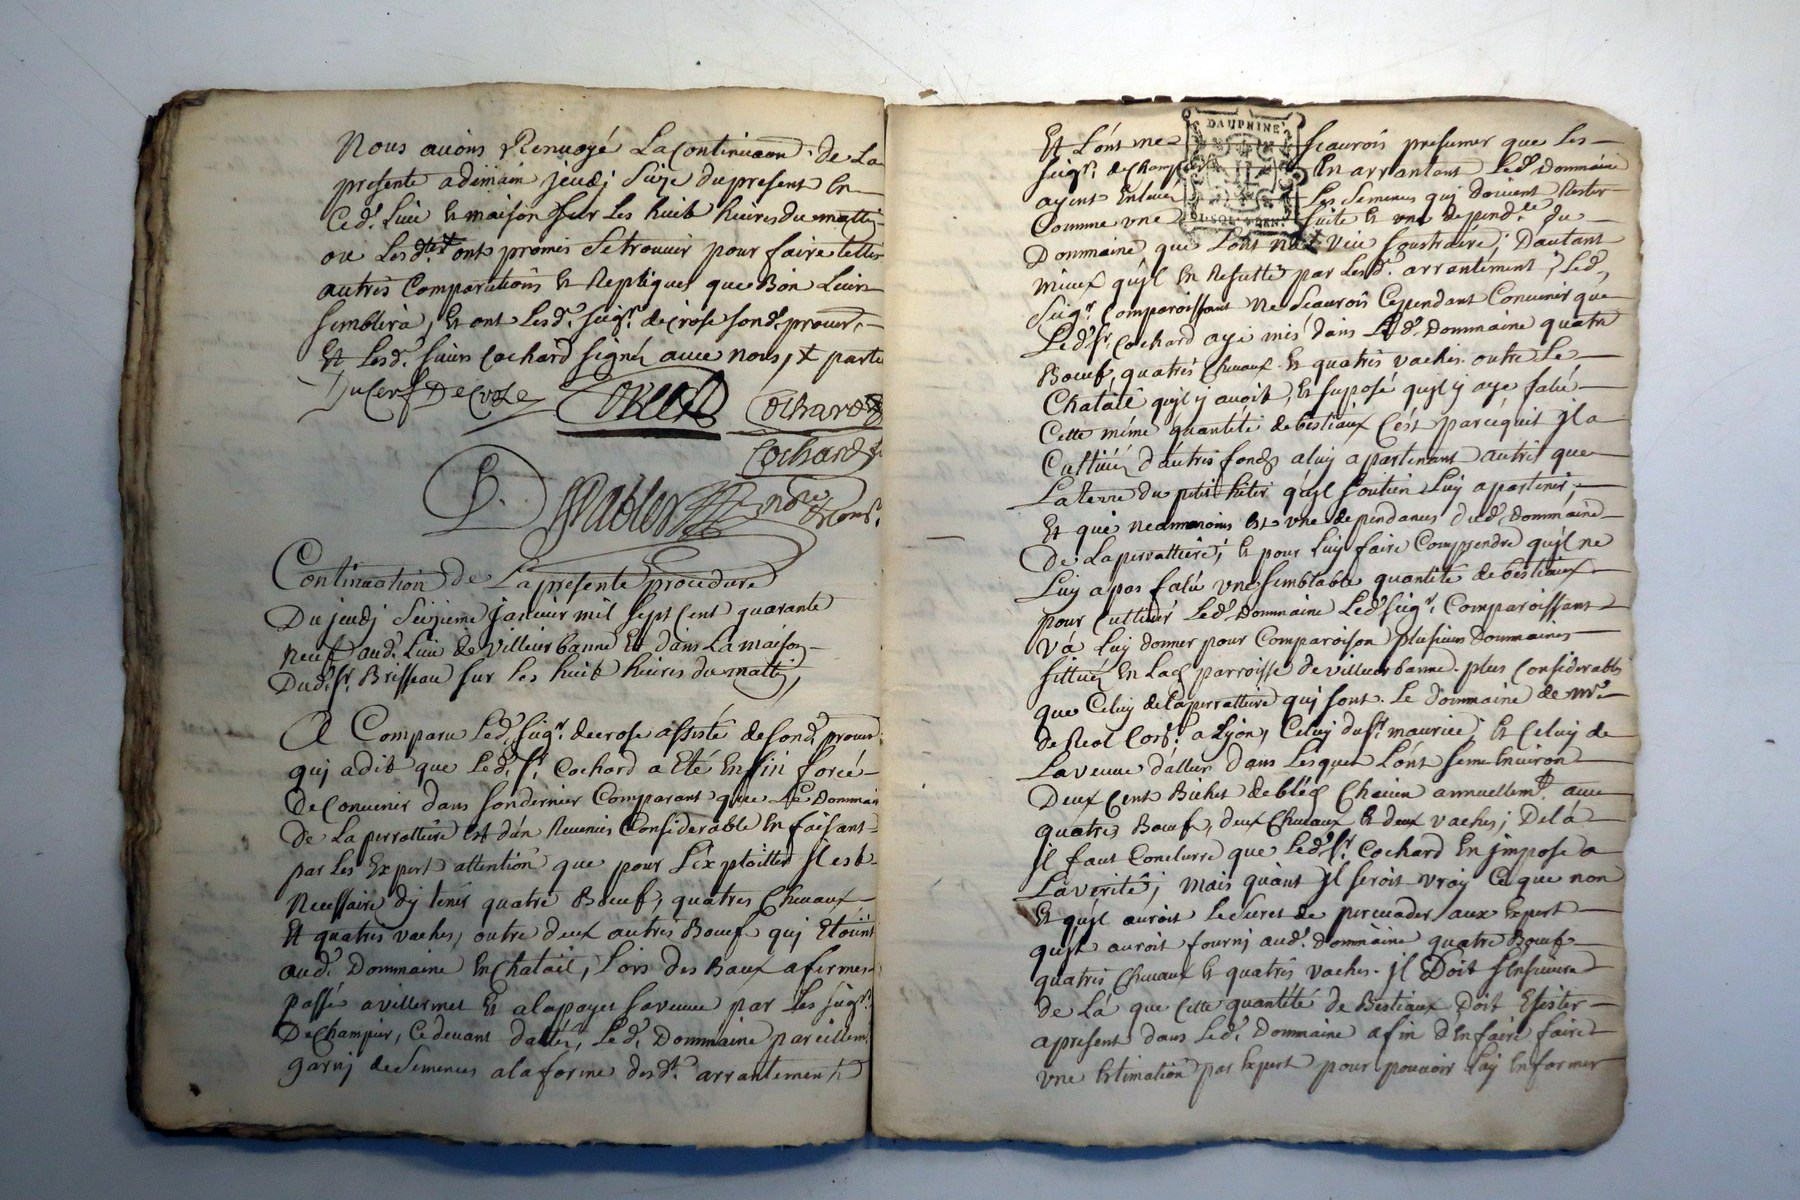 Nous avions Renvoyé La Continuaon. de La
presente a demain jeudj Seize du present En
Ced. Lieu Et maison Sur Les huit heures du mattin
ou Lesd. ont promis Se trouver pour faire telles
autres Comparutions Et Repliques que Bon Leurs
Semblera, Et ont Lesd. Seigr. de crose sond. procur.
Et Lesd. Sieurs Cochard Signé avec nous, partie
DuCerf De Croze Cochard
Cochard
Continuation de La presente procedure
Du jeudj Seizieme janvier mil Sept Cent quarante
neuf aud. Lieu de Villeurbanne Et dans La maison
Dud. Sr. Brisseau Sur Les huit heures du mattin,
A Comparu Led. Seigr. decrose assisté de sond. procur.
quj a dit que Led. Sr. Cochard a Eté Enfin forcé
De Convenir dans son dernier Comparant que Le Dommaine
De La perrattiere Est d'un Revenus Considerable En faisant
par Les Expert attention que pour L'éxploitter Jl est
Necessaire dy tenir quatre Bœuf, quatres Chevaux
Et quatres vaches, outre deux autres Bœuf quj Etoient
aud. Dommaine En Chatail, Lors des Baux a fermes
passé a villermet Et a la payet sa veuve par Les Seigr.
De Champier, Ce devant d'allée, Led. Dommaine pareillemt.
garnj de Semences a la forme desd. arrantements
Et L'ont ne DAUPHINÉ Scaurois presumer que Les
Seigr. de Champier En arrantant Led. Dommaine
ayent Enlevé Les Semences quj doivent Rester
Comme une Suite Et une depend.ce du
Dommaine, que L'ont n'a veu soustraire; D'autant
mieux qu'jl En Resulte par Lesd. arrantement, Led.
Seigr. Comparoissant Ne Scaurois Cependant Convenir que
Led. Sr. Cochard aye mis dans Led. Dommaine quatre
Bœuf, quatrés Chevaux Et quatres vaches outre Le
Chatail qu'jl y avoit, Et suposé qu'jl y aye falu
Cette méme quantité de bestiaux C'est parcequ'jl a
Cultivé d'autres fonds a luy apartenant autres que
La terre du petit qu'jl soutien Luy apartenir,
Et qui neammoins Est une dependances dud. Dommaine
De La perrattiere; Et pour Luy faire Comprendre qu'jl ne
Luy a pas falu une semblable quantité de bestiaux
pour Cultiver Led. Dommaine Led. Seigr. Comparoissant
va Luy donner pour Comparoison plusieurs Dommaines
Sittué En Lad. parroisse de villeurbanne plus Considerables
que Celuy de La perrattiere quj sont Le Dommaine de mr.
de Real Cons. a Lyon, Celuy du Sr. maurice, Et Celuy de
La veuve dallier Dans Lesquel L'ont seme Environ
Deux Cent Bichet de bléd Chacun annuellemt. avec
quatre Bœuf, deux Chevaux Et deux vaches; De Là
Jl faut Conclurre que Led. Sr. Cochard En jmpose a
La verité; mais quant Jl seroit vray Ce que non
Et qu'jl auroit Le Secret de persuader aux Expert
qu'jl auroit fournj aud. Dommaine quatre Bœuf
quatres Chevaux Et quatres vaches. Jl Doit S'Ensuivre
de Là que Cette quantité de Bestiaux Doit Exister
apresent dans Led. Dommaine afin d'En faire faire
une Estimation par Expert pour pouvoir Luy En former